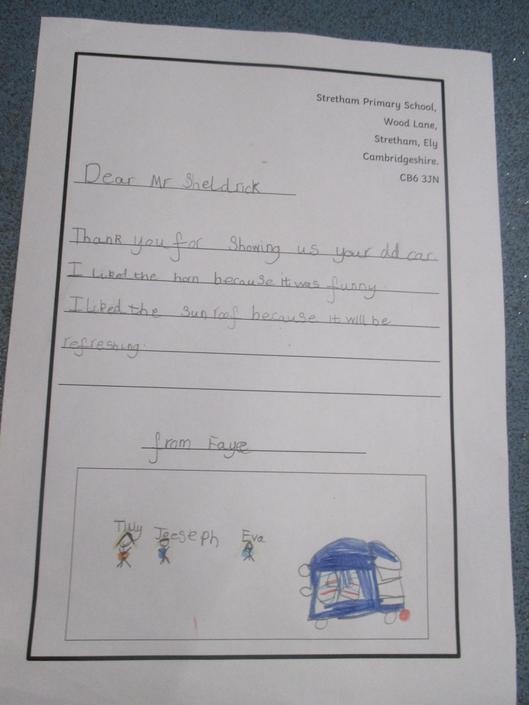 Stretham Primary School,
Wood Lane,
Stretham, Ely
Cambridgeshire.
CB6 3JN
Dear Mr Sheldrick
Thank you for showing us your old car.
I liked the horn because it was funny.
I liked the sunroof because it will be
refreshing.
from Faye
Tilly Jeeseph Eva